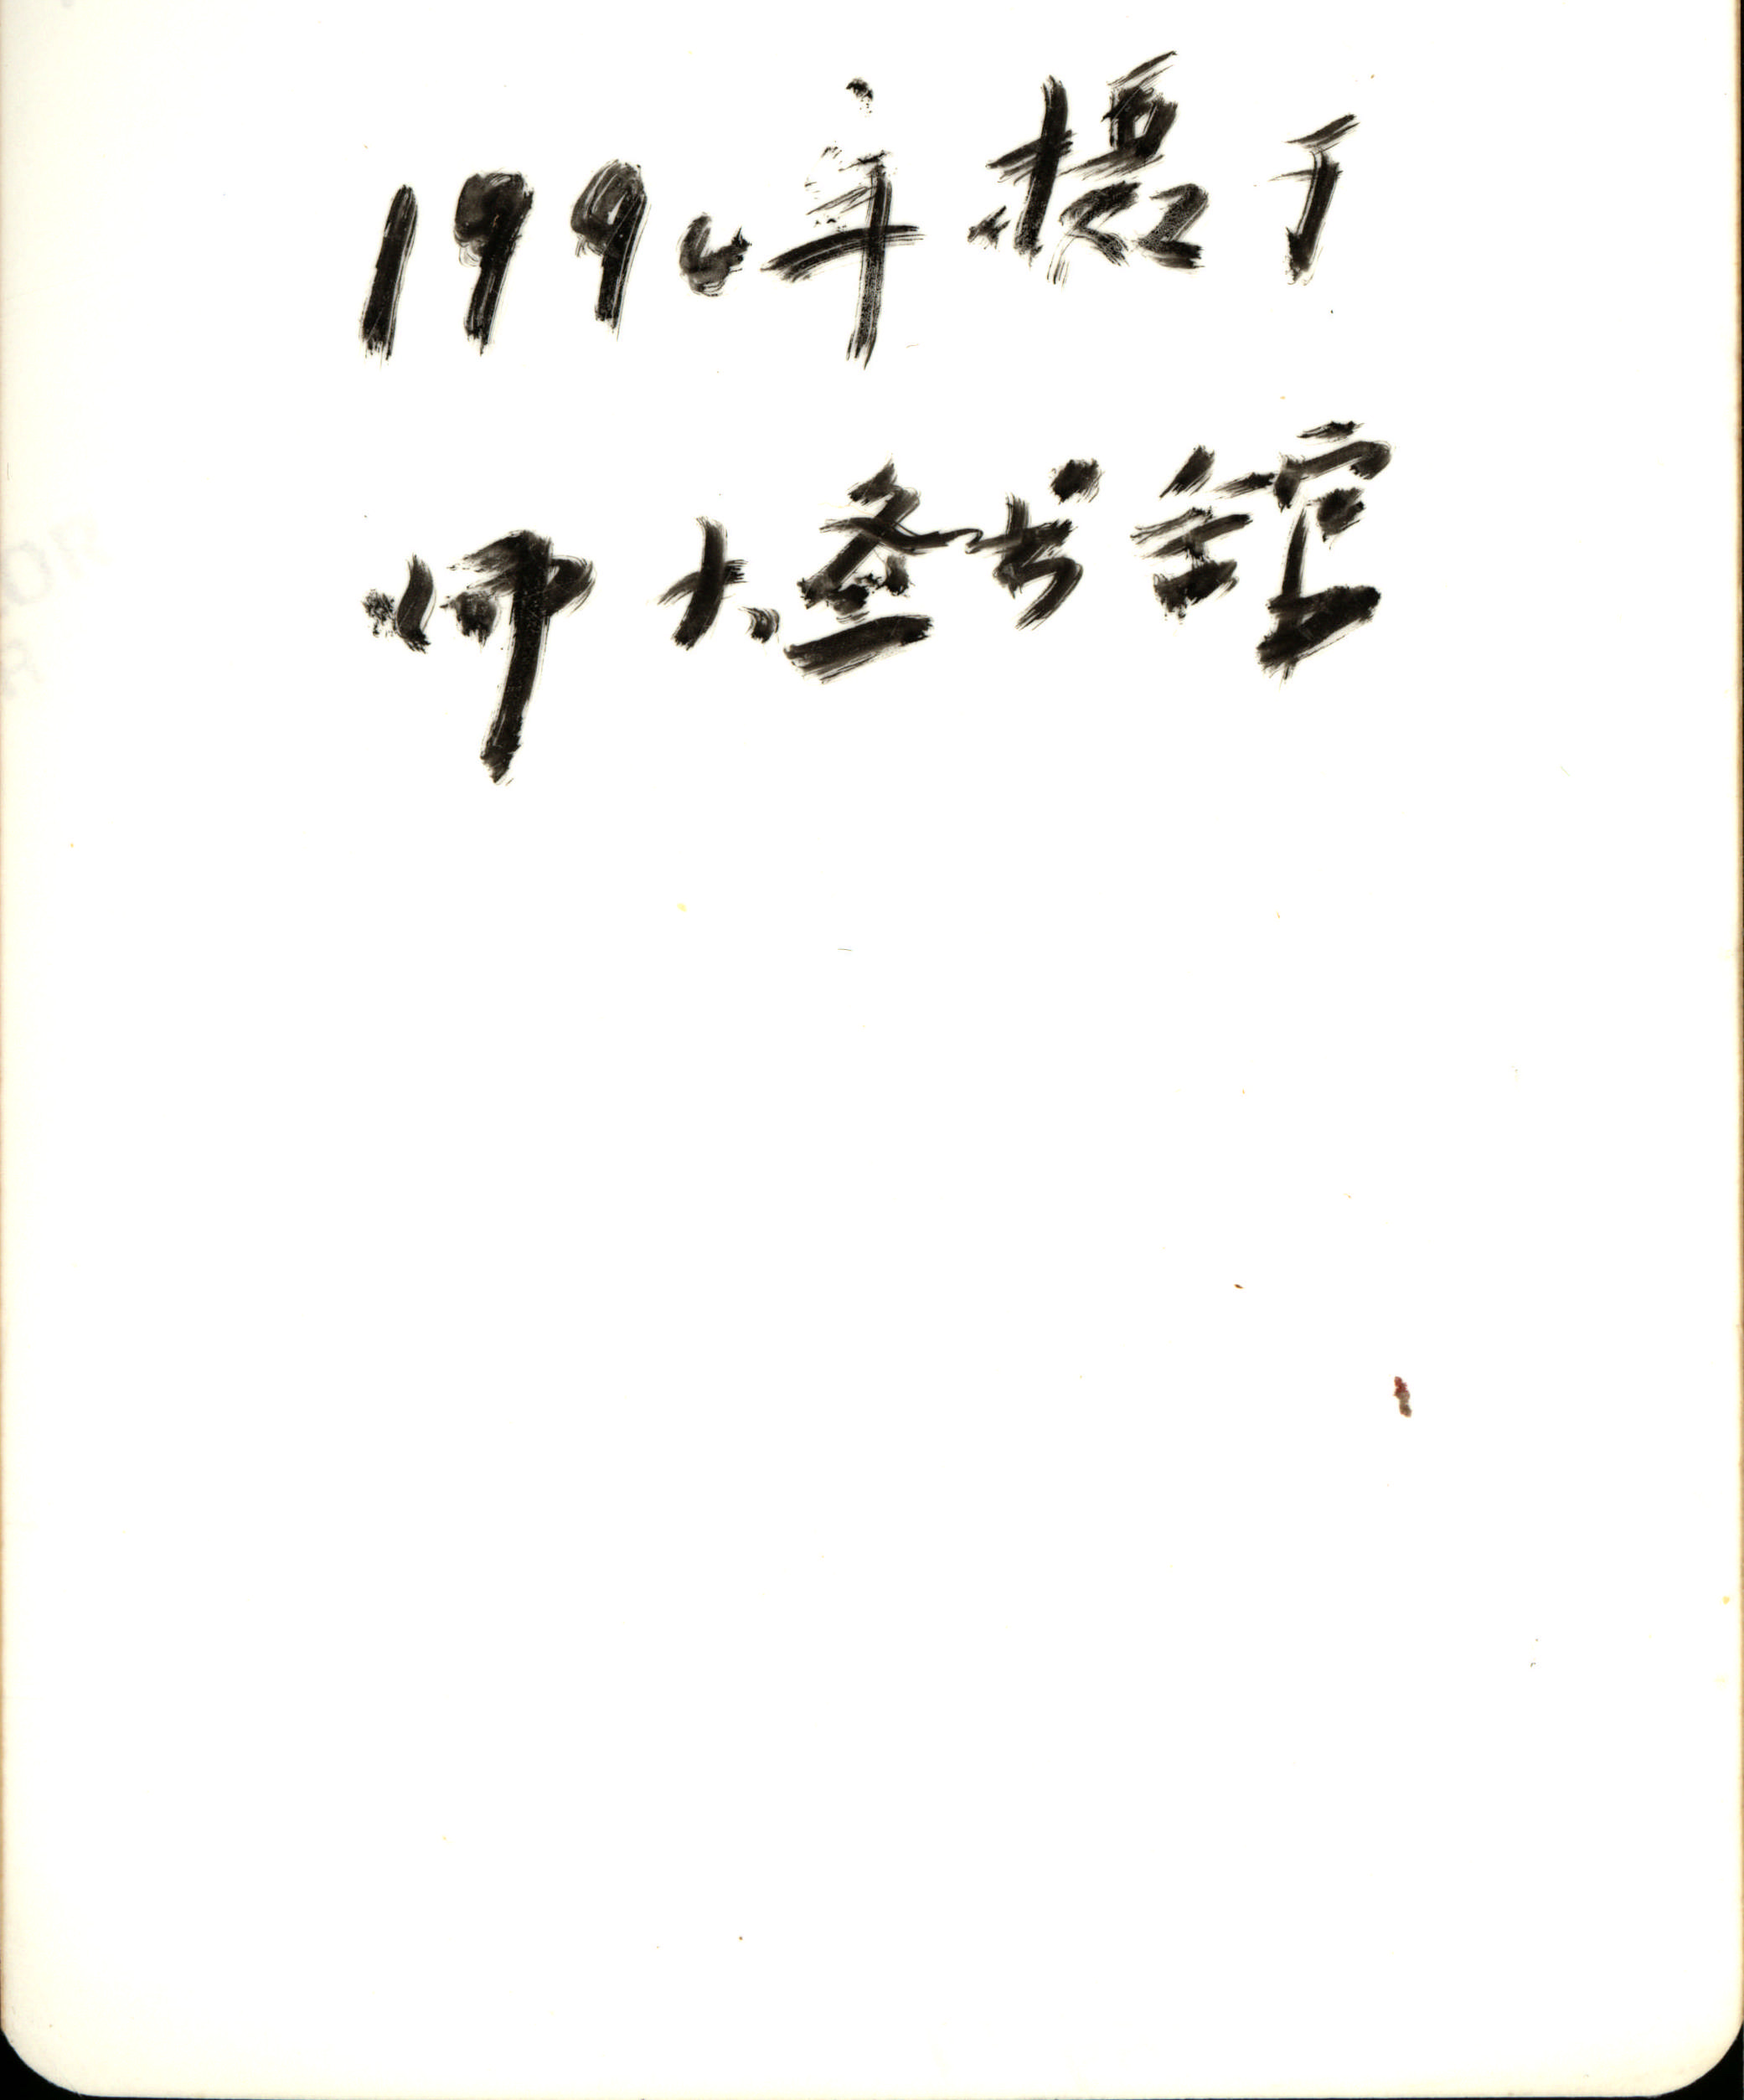 1990年摄于
师大图书舘